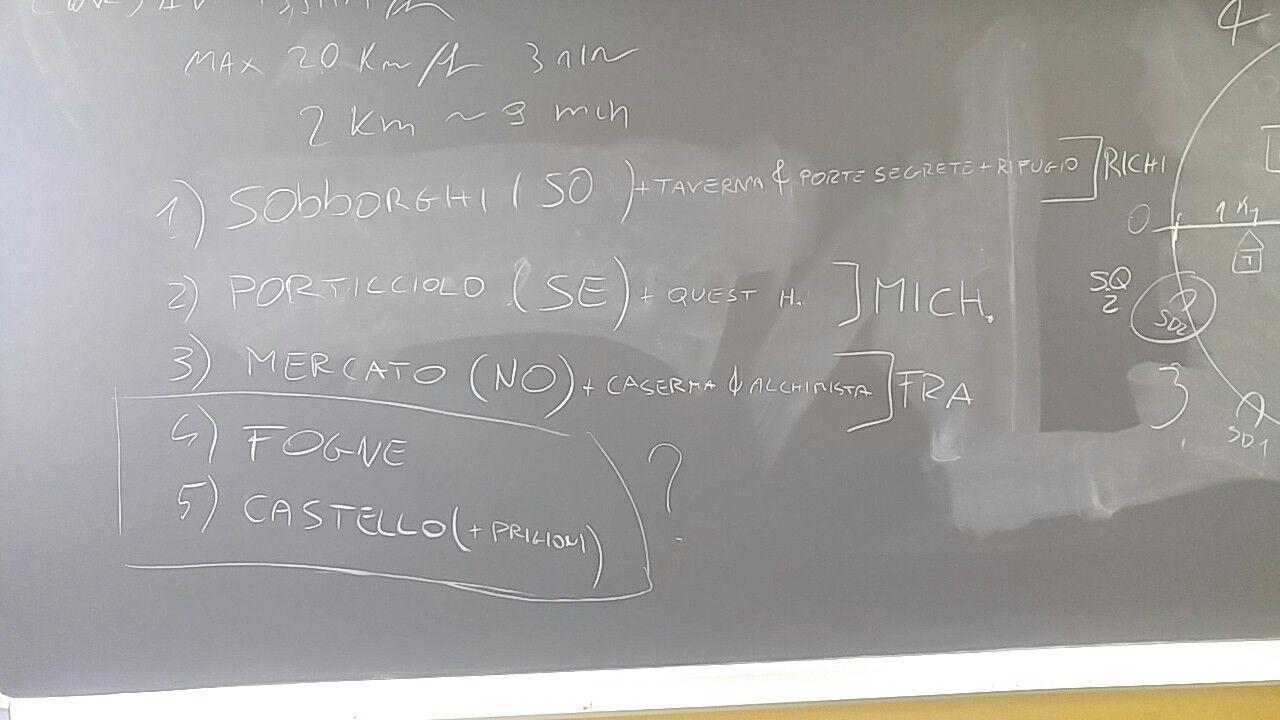 MAX 20 Km/h 3 min
2 Km ~ 9 min
1) SOBBORGHI (SO) + TAVERNA & PORTE SEGRETE + RIFUGIO ] RICHI
2) PORTICCIOLO (SE) + QUEST H. ] MICH.
3) MERCATO (NO) + CASERMA & ALCHIMISTA ] FRA
4) FOGNE
5) CASTELLO (+ PRIGIONI)
?
4
O 1 K
T
SQ
2
SD2
3
SD1